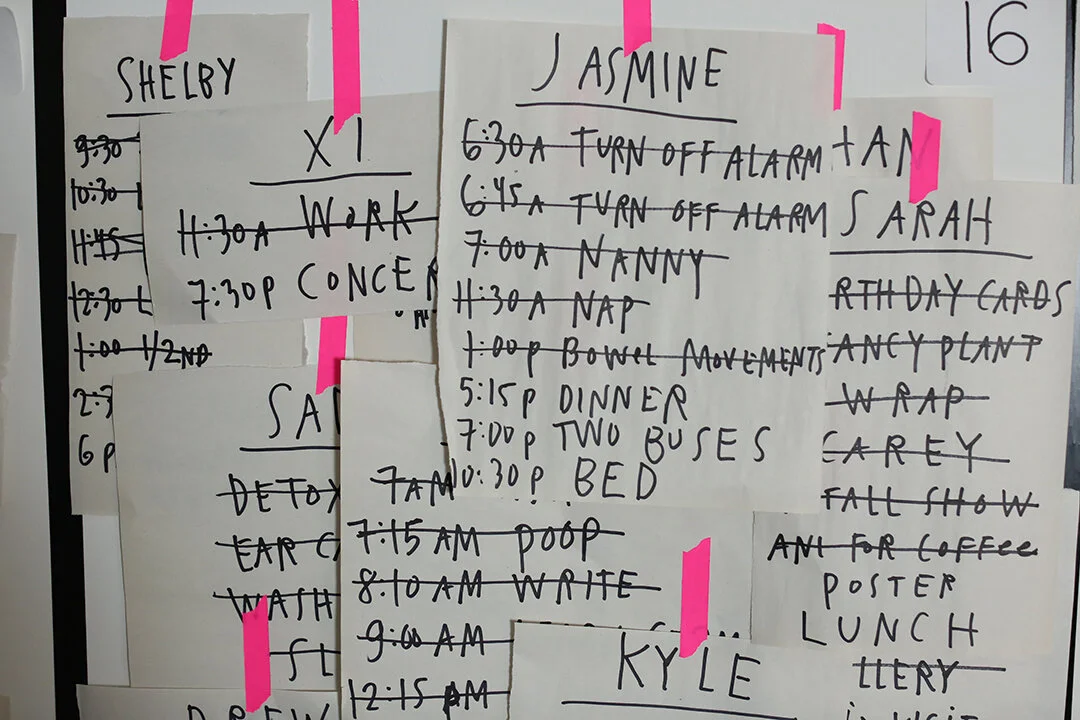 16
SHELBY
9:30
10:30
11:45
12:30
1:00 1/2ND
2:3
6 P
XI
11:30A WORK
7:30P CONCER
JASMINE
6:30A TURN OFF ALARM
6:45A TURN OFF ALARM
7:00A NANNY
11:30A NAP
1:00P BOWEL MOVEMENTS
5:15P DINNER
7:00P TWO BUSES
10:30P BED
TAN
SARAH
RTHDAY CARDS
ANCY PLANT
WRAP
CAREY
FALL SHOW
ANI FOR COFFEE
POSTER
LUNCH
LLERY
SA
DETOX
EAR C
WASH
SL
7AM
7:15 AM POOP
8:10 AM WRITE
9:00 AM
12:15 PM
KYLE
DREW